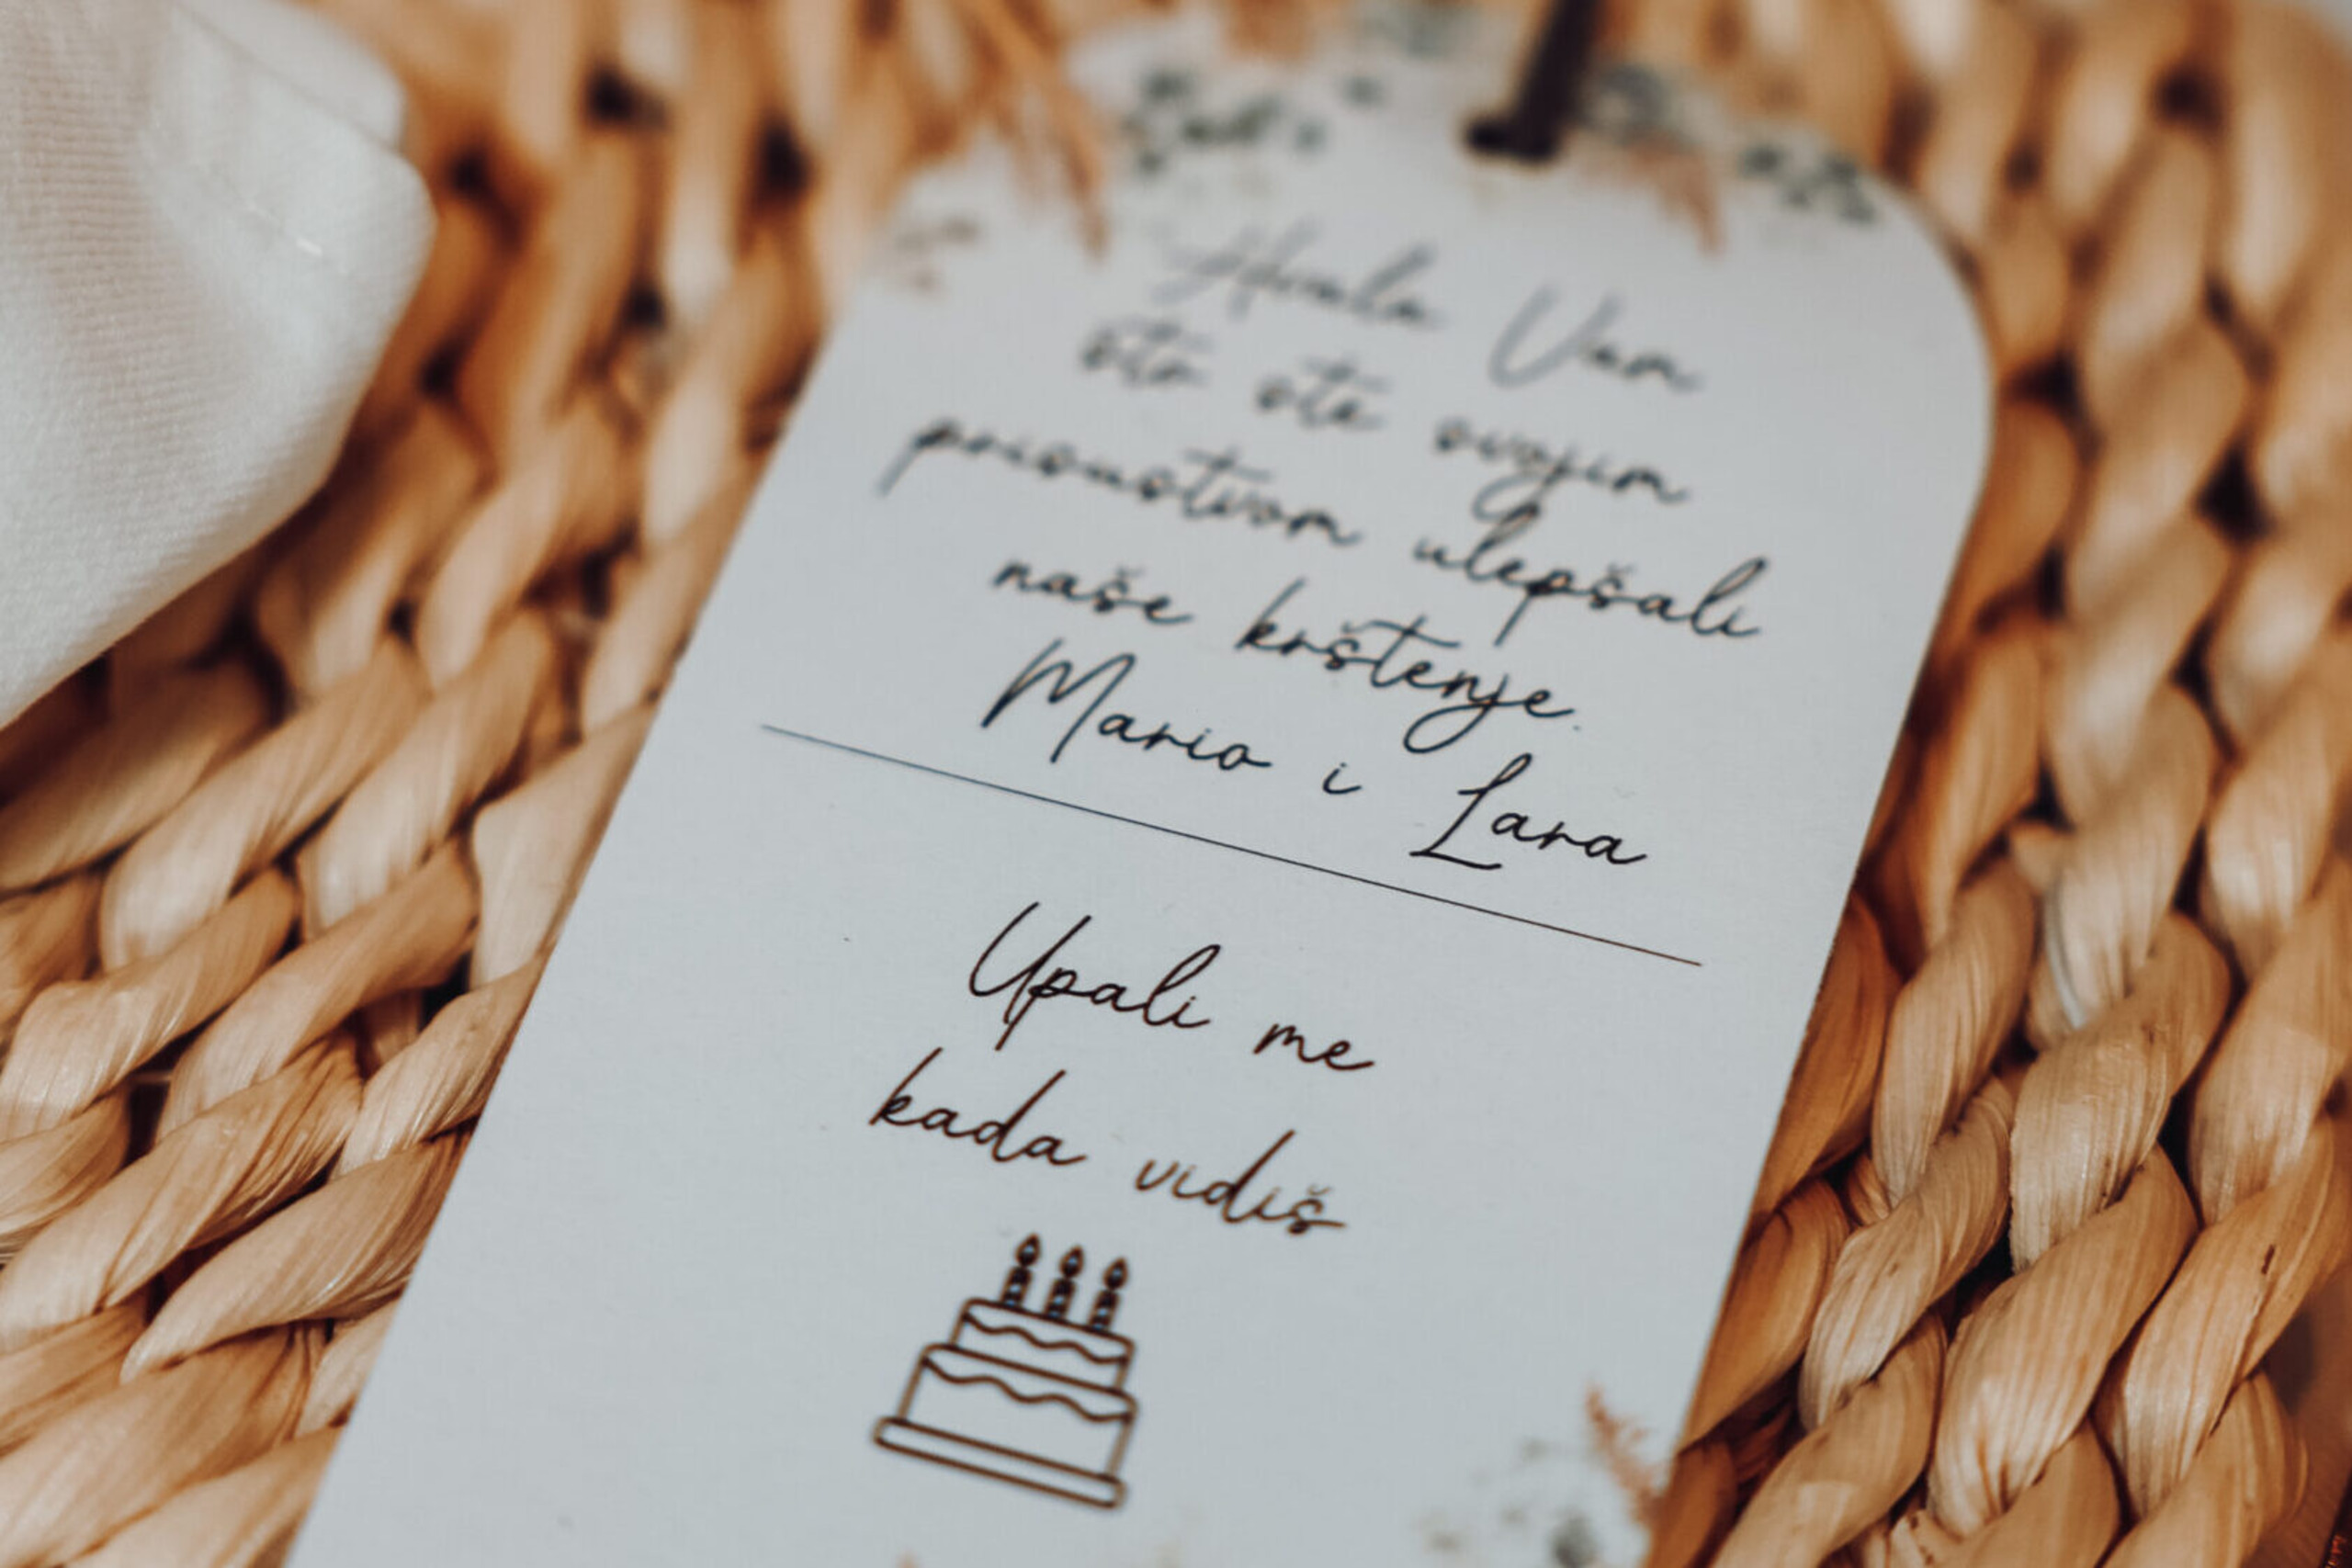 Hvala Vam
što ste svojim
prisustvom ulepšali
naše krštenje.
Mario i Lara
Upali me
kada vidiš